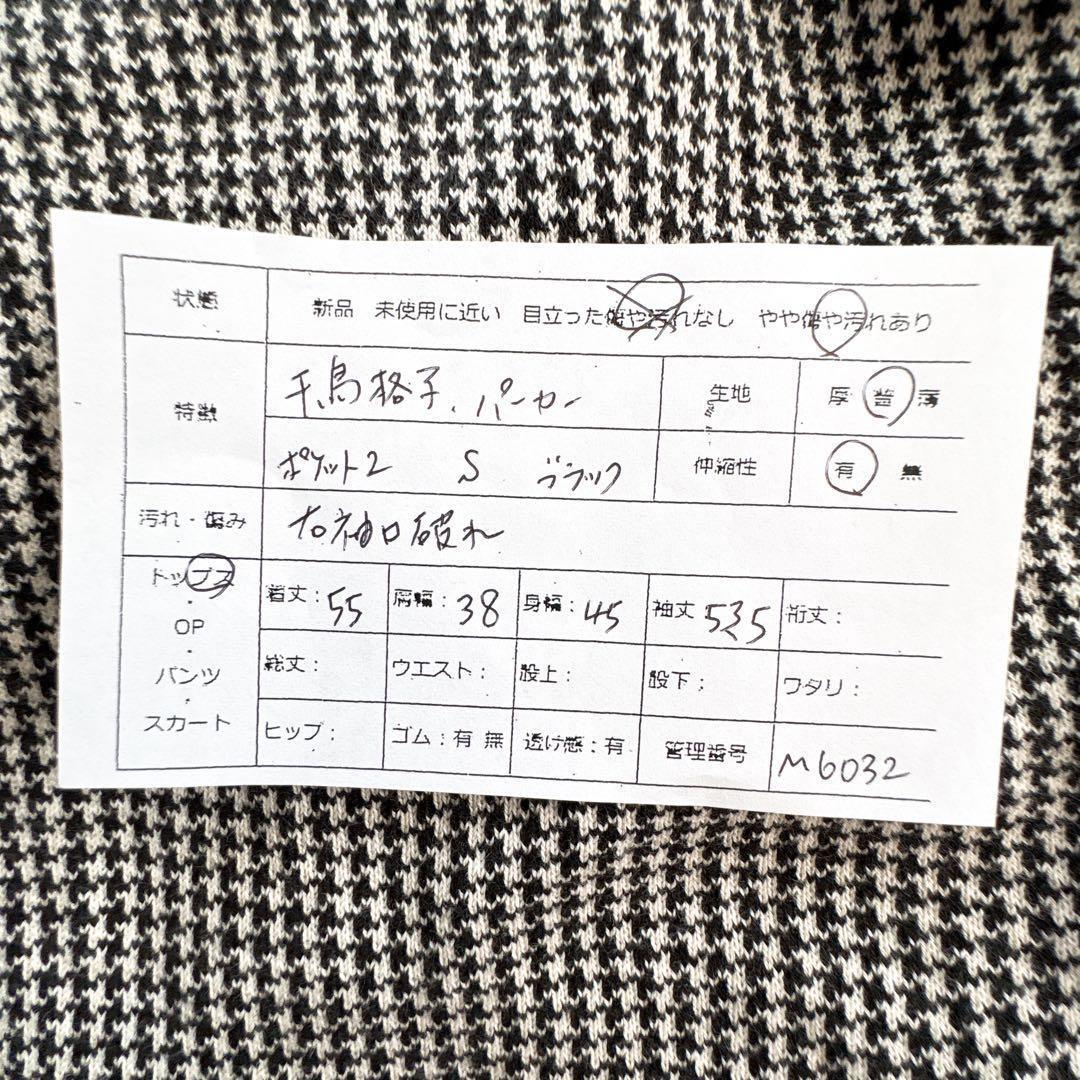 状態 新品 未使用に近い 目立った傷や汚れなし やや傷や汚れあり
特徴 千鳥格子、パーカー 生地 厚 普 薄
ポケット2 S ブラック 伸縮性 有 無
汚れ・傷み 右袖口破れ
トップス・OP・パンツ・スカート
着丈：55 肩幅：38 身幅：45 袖丈 53.5 裄丈：
総丈： ウエスト： 股上： 股下； ワタリ：
ヒップ： ゴム：有 無 透け感：有 管理番号 M6032